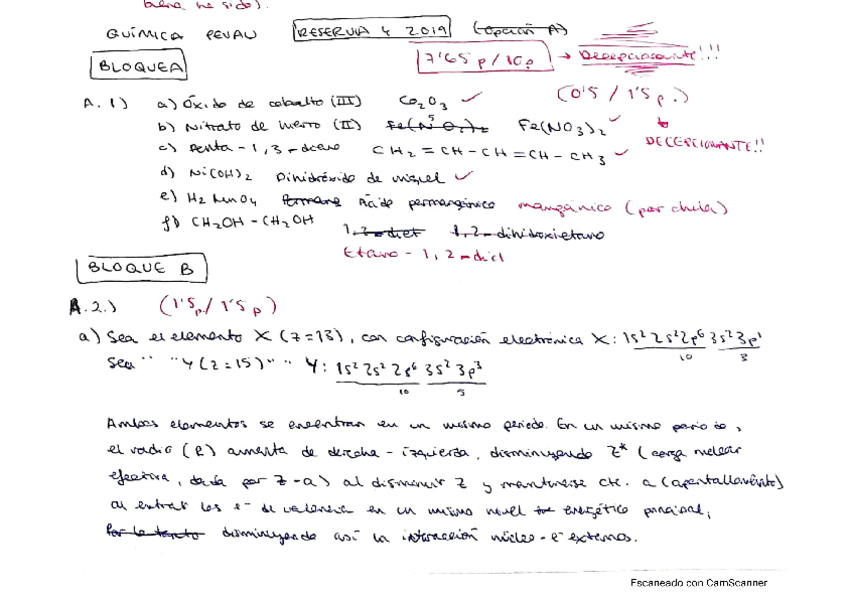 buena he sido).
QUÍMICA PEVAU RESERVA 4 2019 (opción A)
7'65 p / 10p → Decepcionante!!!
BLOQUE A
(0'5 / 1'5 p.)
DECEPCIONANTE!!
A. 1) a) Óxido de cobalto (III) Co2O3 ✓
b) Nitrato de hierro (II) Fe(NO3)2 ✓
c) Penta-1,3-dieno CH2 = CH - CH = CH - CH3 ✓
d) Ni(OH)2 Dihidróxido de níquel ✓
e) H2MnO4 Ácido permangánico mangánico (por chula)
f) CH2OH - CH2OH 1,2-diet 1,2-dihidroxietano
Etano-1,2-diol
BLOQUE B
A.2.) (1'5p / 1'5 p)
a) Sea el elemento X (Z=13), con configuración electrónica X: 1s² 2s² 2p⁶ 3s² 3p¹
10 3
Sea " " Y (Z=15) " " Y: 1s² 2s² 2p⁶ 3s² 3p³
10 5
Ambos elementos se encentran en un mismo periodo. En un mismo periodo,
el radio (R) aumenta de derecha-izquierda, disminuyendo Z* (carga nuclear
efectiva, dada por Z-a) al disminuir Z y mantenerse cte. a (apantallamiento)
al entrar los e⁻ de valencia en un mismo nivel energético principal,
Por lo tanto disminuyendo así la interacción núcleo-e⁻ externos.
Escaneado con CamScanner